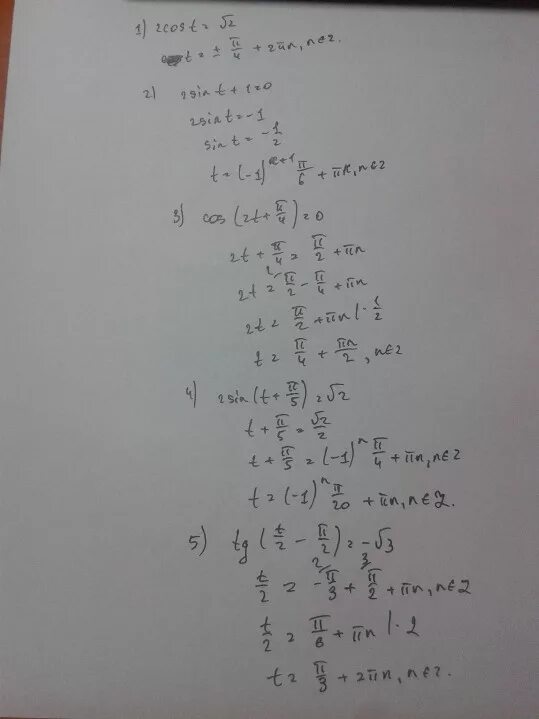 1) 2cost = √2
t = ± π/4 + 2πn, n∈Z.
2) 2sint + 1 = 0
2sint = -1
sint = -1/2
t = (-1)^(n+1) π/6 + πn, n∈Z
3) cos(2t + π/4) = 0
2t + π/4 = π/2 + πn
2t = π/2 - π/4 + πn
2t = π/2 + πn |· 1/2
t = π/4 + πn/2, n∈Z
4) 2sin(t + π/5) = √2
t + π/5 = √2/2
t + π/5 = (-1)^n π/4 + πn, n∈Z
t = (-1)^n π/20 + πn, n∈Z.
5) tg(t/2 - π/2) = -√3
t/2 = -π/3 + π/2 + πn, n∈Z
t/2 = π/6 + πn |· 2
t = π/3 + 2πn, n∈Z.